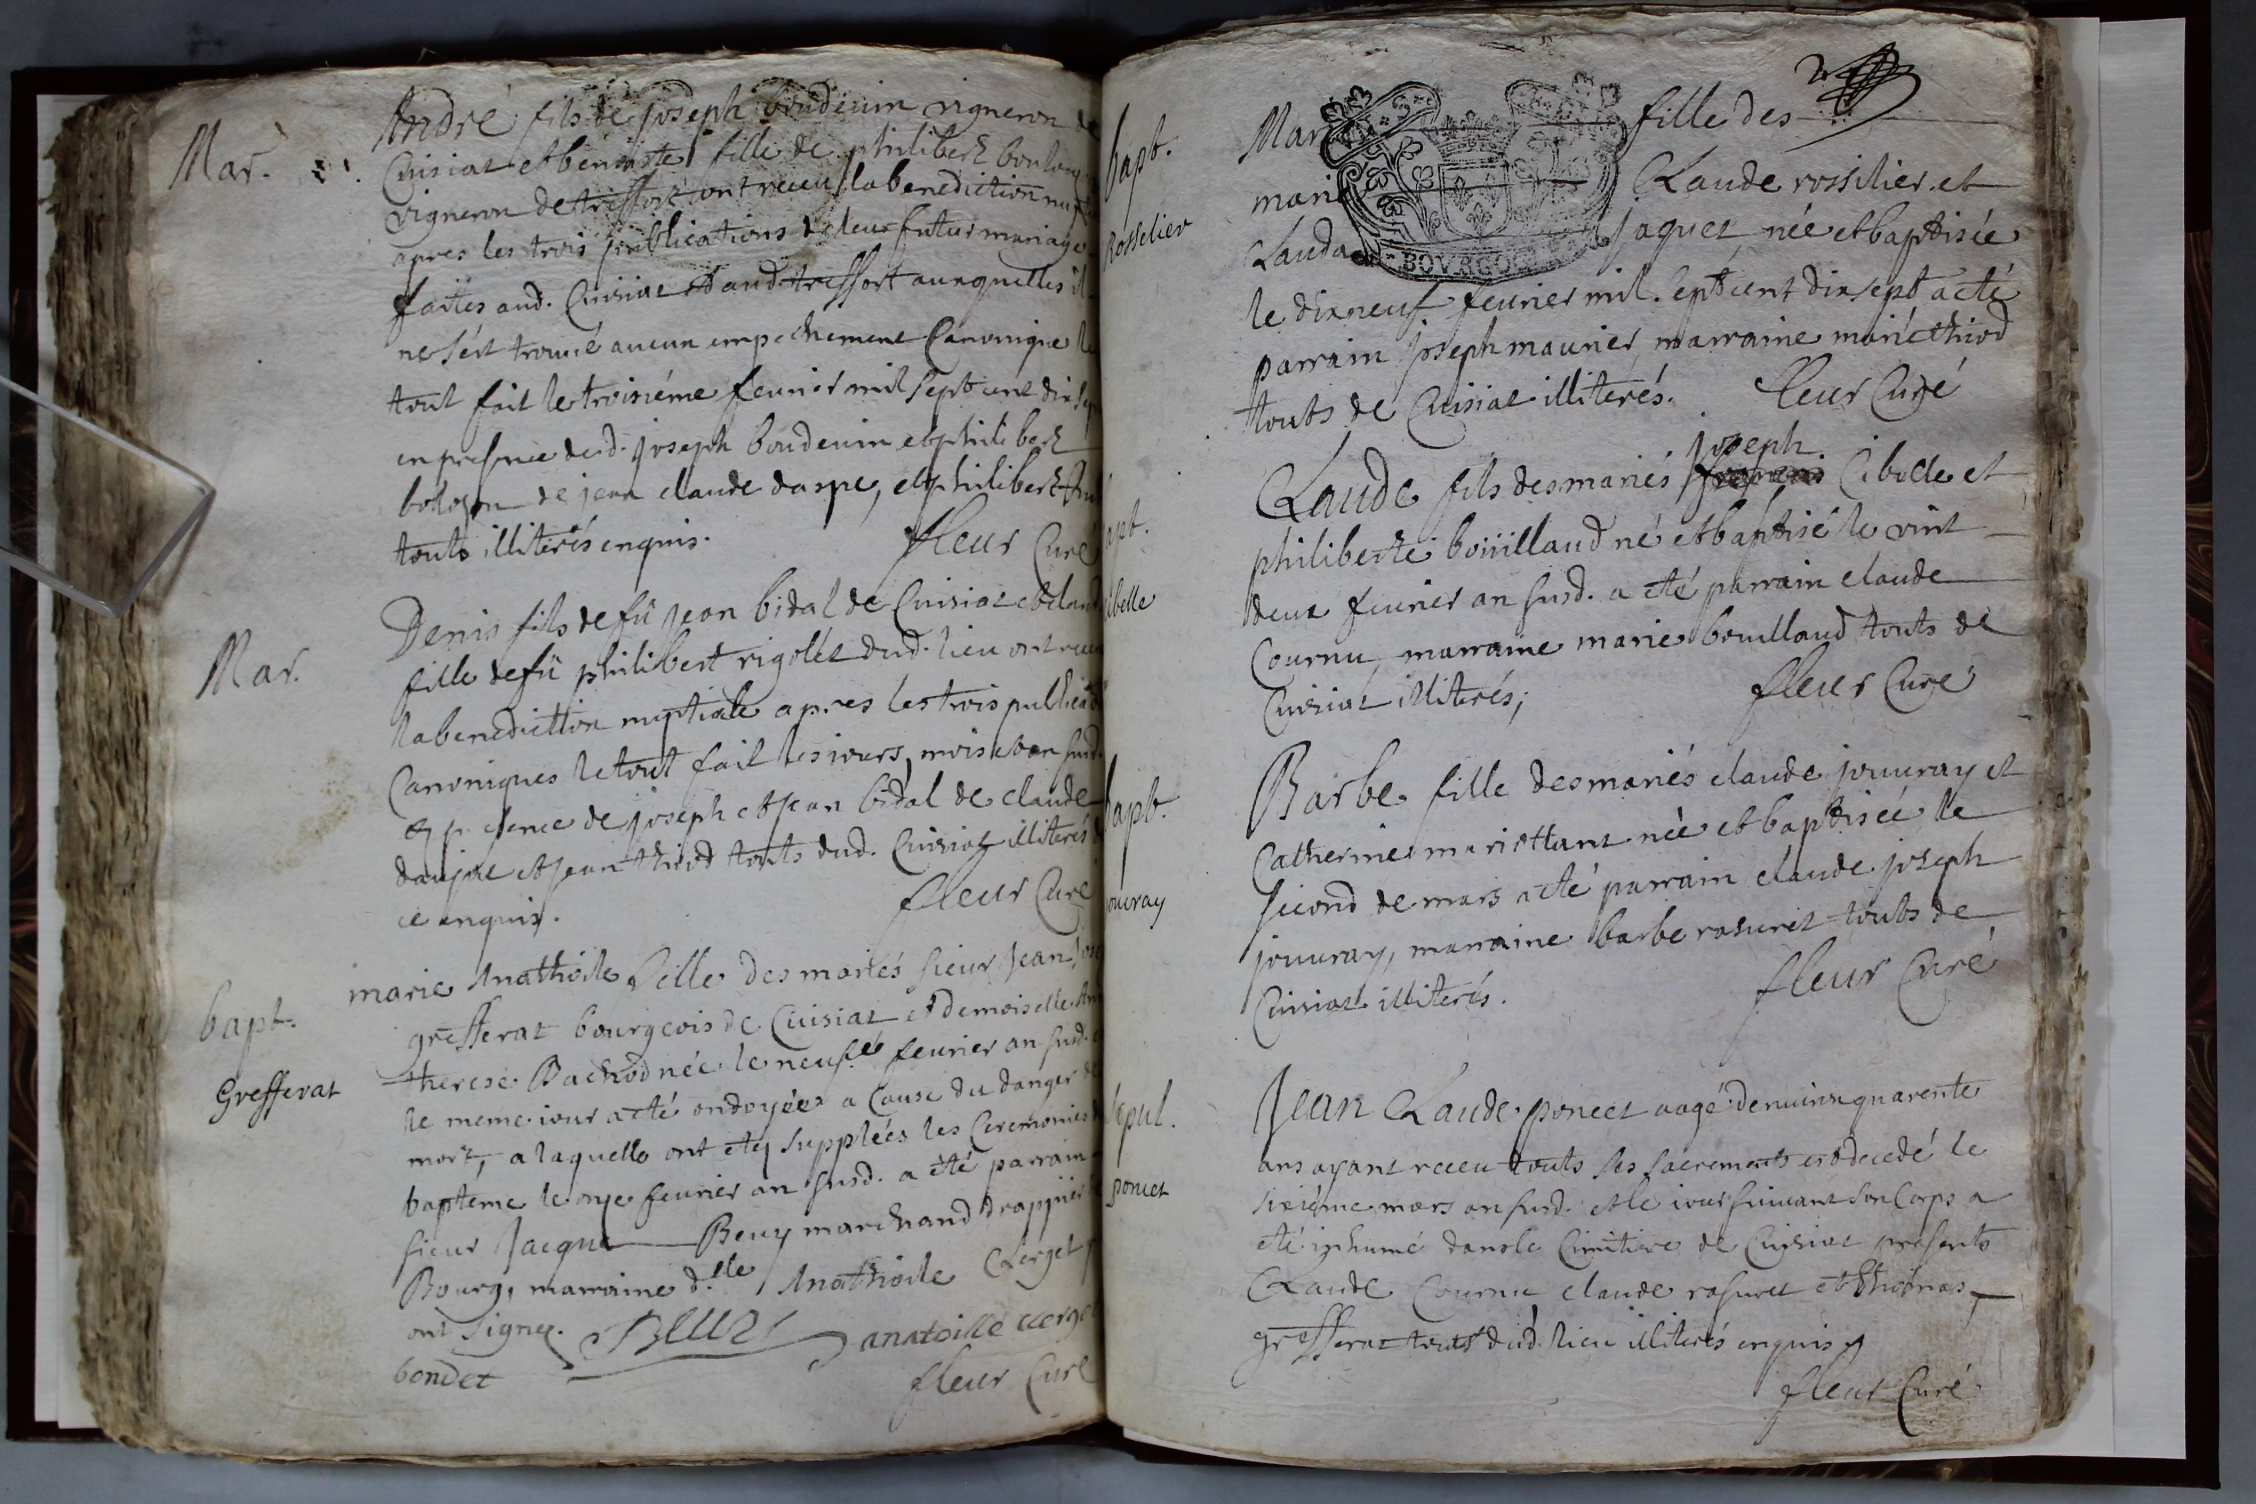 Mar.
André fils de joseph boudeuin vigneron de
Cuisiat et benoiste fille de philibert
vigneron de treffort ont receu la benediction
apres les trois publications de leur futur mariage
faites aud. Cuisiat et aud. treffort auxquelles il
ne s'est trouué aucun empechement Canonique le
tout fait le troisiéme feurier mil sept cent dix sept
en presence dud. joseph boudeuin et philibert
de jean claude daspe, et philibert
touts illiterés enquis.
fleur Curé
Mar.
Denis fils de fû jean bidal de Cuisiat et
fille de fû philibert rigolet dud. lieu ont receu
la benediction nuptiale apres les trois
Canoniques le tout fait les iours, mois et an susd.
en presence de joseph et jean bidal de claude
et jean thiod touts dud. Cuisiat illiterés
ce enquis.
fleur Curé
bapt.
Grefferat
marie Anathoile fille des mariés sieur jean
grefferat bourgeois de Cuisiat et demoiselle
therese Bachod née le neuf.e feurier an susd.
le meme iour a eté ondoyée a Cause du danger de
mort, a laquelle ont etez supplées les Ceremonies
baptéme le onze feurier an susd. a été parrain
sieur Jacque Beuz marchand drappier
Bourg, marraine d.lle Anathoile Clerget
ont signez. Beuz anatoille clerget
bondet
fleur Curé
bapt.
Rosselier
Mar fille des
mari Claude rossilier et
Clauda jaquet née et baptisée
le dix neuf feurier mil septcent dix sept a eté
parrain joseph maurier, marraine marie thiod
touts de Cuisiat illiterés. fleur Curé
apt.
ibelle
joseph
Claude fils des mariés Cibelle et
philiberte boüillaud né et baptisé le vint
deux feurier an susd. a eté parrain claude
Cournu, marraine marie bouillaud touts de
Cuisiat illiterés;
fleur Curé
bapt.
ouuray
Barbe fille des mariés claude jouuray et
Catherine mariettant née et baptisée le
second de mars a eté parrain claude joseph
jouuray, marraine barbe rasuret touts de
Cuisiat illiterés.
fleur Curé
sepul.
poncet
Jean Claude poncet aagé denuiron quarente
ans ayant receu touts ses sacrements est decedé le
sixiéme mars an susd. et le iour suiuant son Corps a
eté inhumé dans le Cimitiere de Cuisiat presents
Claude Cournu claude rasuret et thomas
grefferat touts dud. lieu illiterés enquis
fleur Curé
BOVRGO